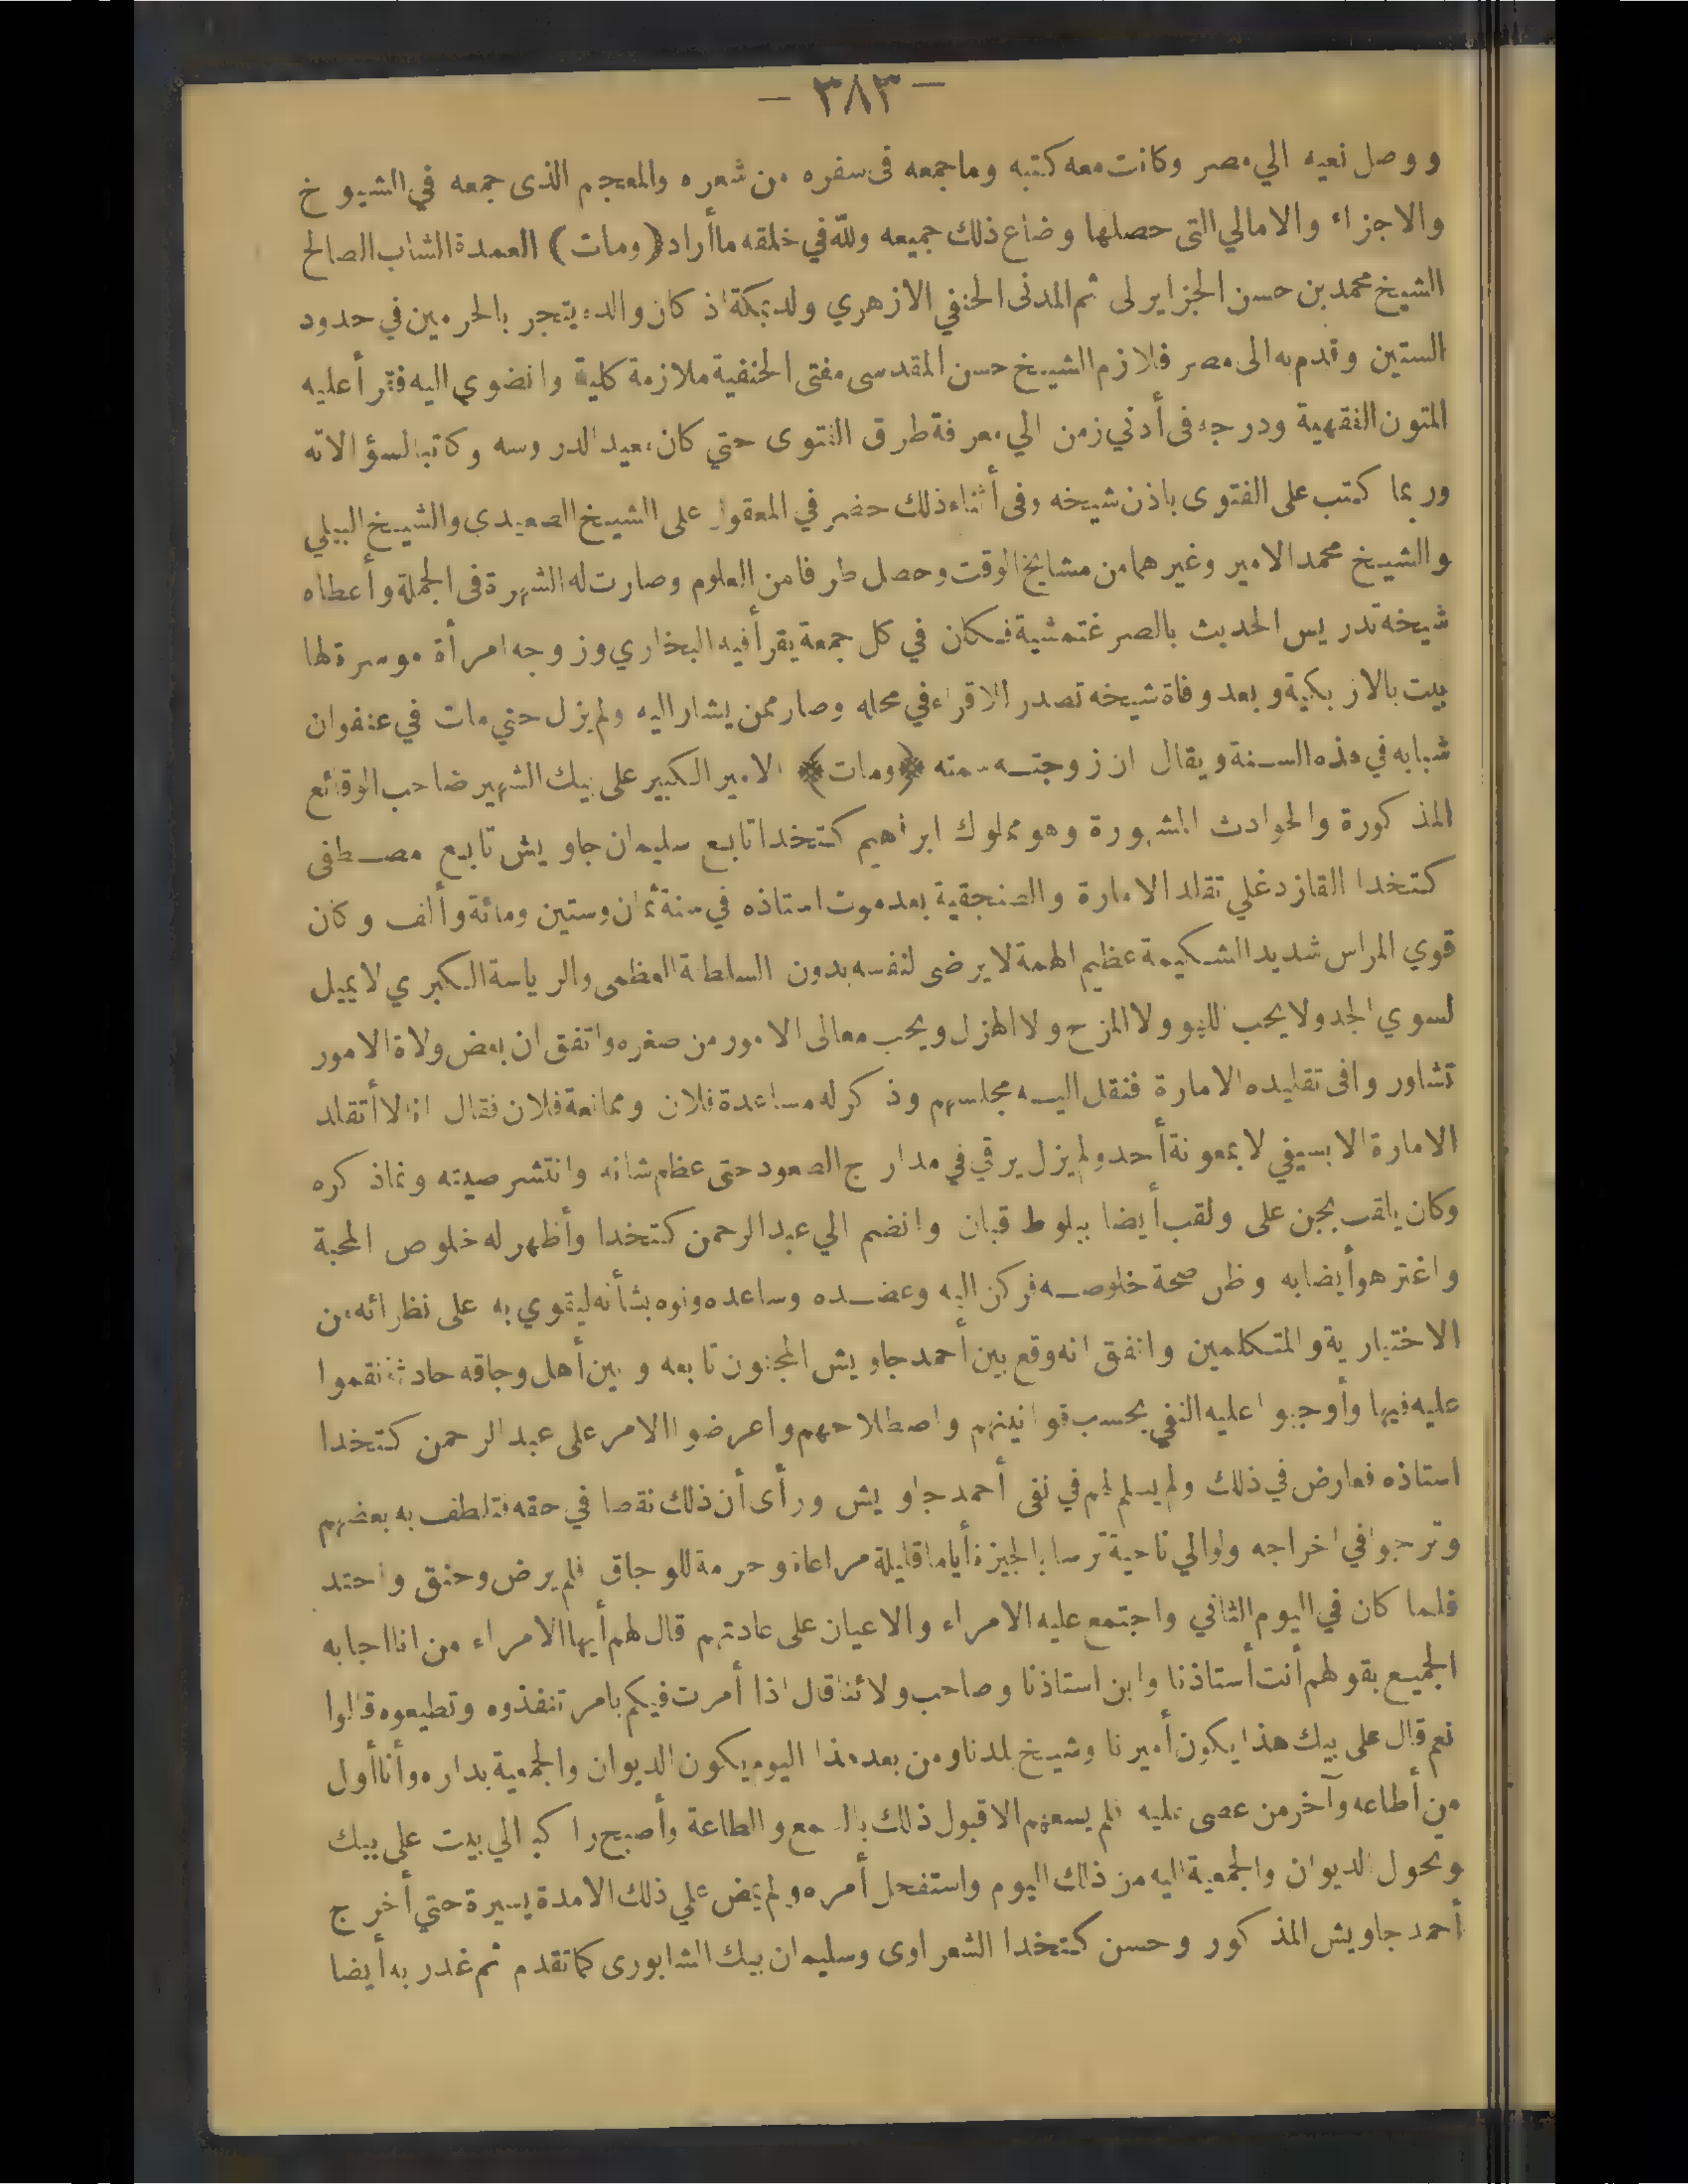 — ٣٨٣ —
ووصل نعيه الي مصر وكانت معه كتبه وما جمعه فى سفره من شعره والمعجم الذى جمعه في الشيوخ
والاجزاء والامالي التى حصلها وضاع ذلك جميعه ولله في خلقه ما أراد (ومات) العمدة الشاب الصالح
الشيخ محمد بن حسن الجزايرلى ثم المدنى الحنفي الازهري ولد بمكة اذ كان والده يتجر بالحرمين في حدود
الستين وقدم به الى مصر فلازم الشيخ حسن المقدسى مفتى الحنفية ملازمة كلية وانضوي اليه فقرأ عليه
المتون الفقهية ودرجه فى أدني زمن الي معرفة طرق الفتوى حتي كان معيد الدروسه وكاتبا لسؤالاته
وربما كتب على الفتوى باذن شيخه وفى أثناء ذلك حضر في المعقول على الشيخ الصعيدي والشيخ البيلي
والشيخ محمد الامير وغيرهما من مشايخ الوقت وحصل طرفا من العلوم وصارت له الشهرة فى الجملة وأعطاه
شيخه تدريس الحديث بالصرغتمشية فكان في كل جمعة يقرأ فيه البخاري وزوجه امرأة موسرة لها
بيت بالازبكية وبعد وفاة شيخه تصدر للاقراء في محله وصار ممن يشار اليه ولم يزل حتي مات في عنفوان
شبابه في هذه السنة ويقال ان زوجته سمته ﴿ومات﴾ الامير الكبير على بيك الشهير صاحب الوقائع
المذكورة والحوادث المشهورة وهو مملوك ابراهيم كتخدا تابع سليمان جاويش تابع مصطفى
كتخدا القازدغلي تقلد الامارة والصنجقية بعد موت استاذه في سنة ثمان وستين ومائة وألف وكان
قوي المراس شديد الشكيمة عظيم الهمة لا يرضى لنفسه بدون السلطة العظمى والرياسة الكبري لا يميل
لسوي الجد ولا يحب اللهو ولا المزح ولا الهزل ويحب معالى الامور من صغره واتفق ان بعض ولاة الامور
تشاوروا فى تقليده الامارة فنقل اليه مجلسهم وذكر له مساعدة فلان وممانعة فلان فقال انا لا أتقلد
الامارة الا بسيفي لا بمعونة أحد ولم يزل يرقي في مدارج الصعود حتى عظم شانه وانتشر صيته ونما ذكره
وكان يلقب بجن على ولقب أيضا ببلوط قبان وانضم الي عبد الرحمن كتخدا وأظهر له خلوص المحبة
واغتر هو أيضا به وظن صحة خلوصه فركن اليه وعضده وساعده ونوه بشأنه ليقوي به على نظرائه من
الاختيارية والمتكلمين واتفق انه وقع بين أحمد جاويش المجنون تابعه وبين أهل وجاقه حادثة نقموا
عليه فيها وأوجبوا عليه النفي بحسب قوانينهم واصطلاحهم واعرضوا الامر على عبد الرحمن كتخدا
استاذه فعارض في ذلك ولم يسلم لهم في نفى أحمد جاويش ورأى أن ذلك نقصا في حقه فتلطف به بعضهم
وترجوا في اخراجه ولو الي ناحية ترسا بالجيزة أياما قليلة مراعاة وحرمة للوجاق فلم يرض وحنق واحتد
فلما كان في اليوم الثاني واجتمع عليه الامراء والاعيان على عادتهم قال لهم أيها الامراء من انا اجابه
الجميع بقولهم أنت أستاذنا وابن استاذنا وصاحب ولائنا قال اذا أمرت فيكم بامر تنفذوه وتطيعوه قالوا
نعم قال على بيك هذا يكون أميرنا وشيخ بلدنا ومن بعد هذا اليوم يكون الديوان والجمعية بداره وأنا أول
من أطاعه وآخر من عصى عليه فلم يسعهم الا قبول ذلك بالسمع والطاعة وأصبح راكبا الي بيت على بيك
وتحول الديوان والجمعية اليه من ذلك اليوم واستفحل أمره ولم يمض علي ذلك الامدة يسيرة حتي أخرج
أحمد جاويش المذكور وحسن كتخدا الشعراوى وسليمان بيك الشابورى كما تقدم ثم غدر به أيضا